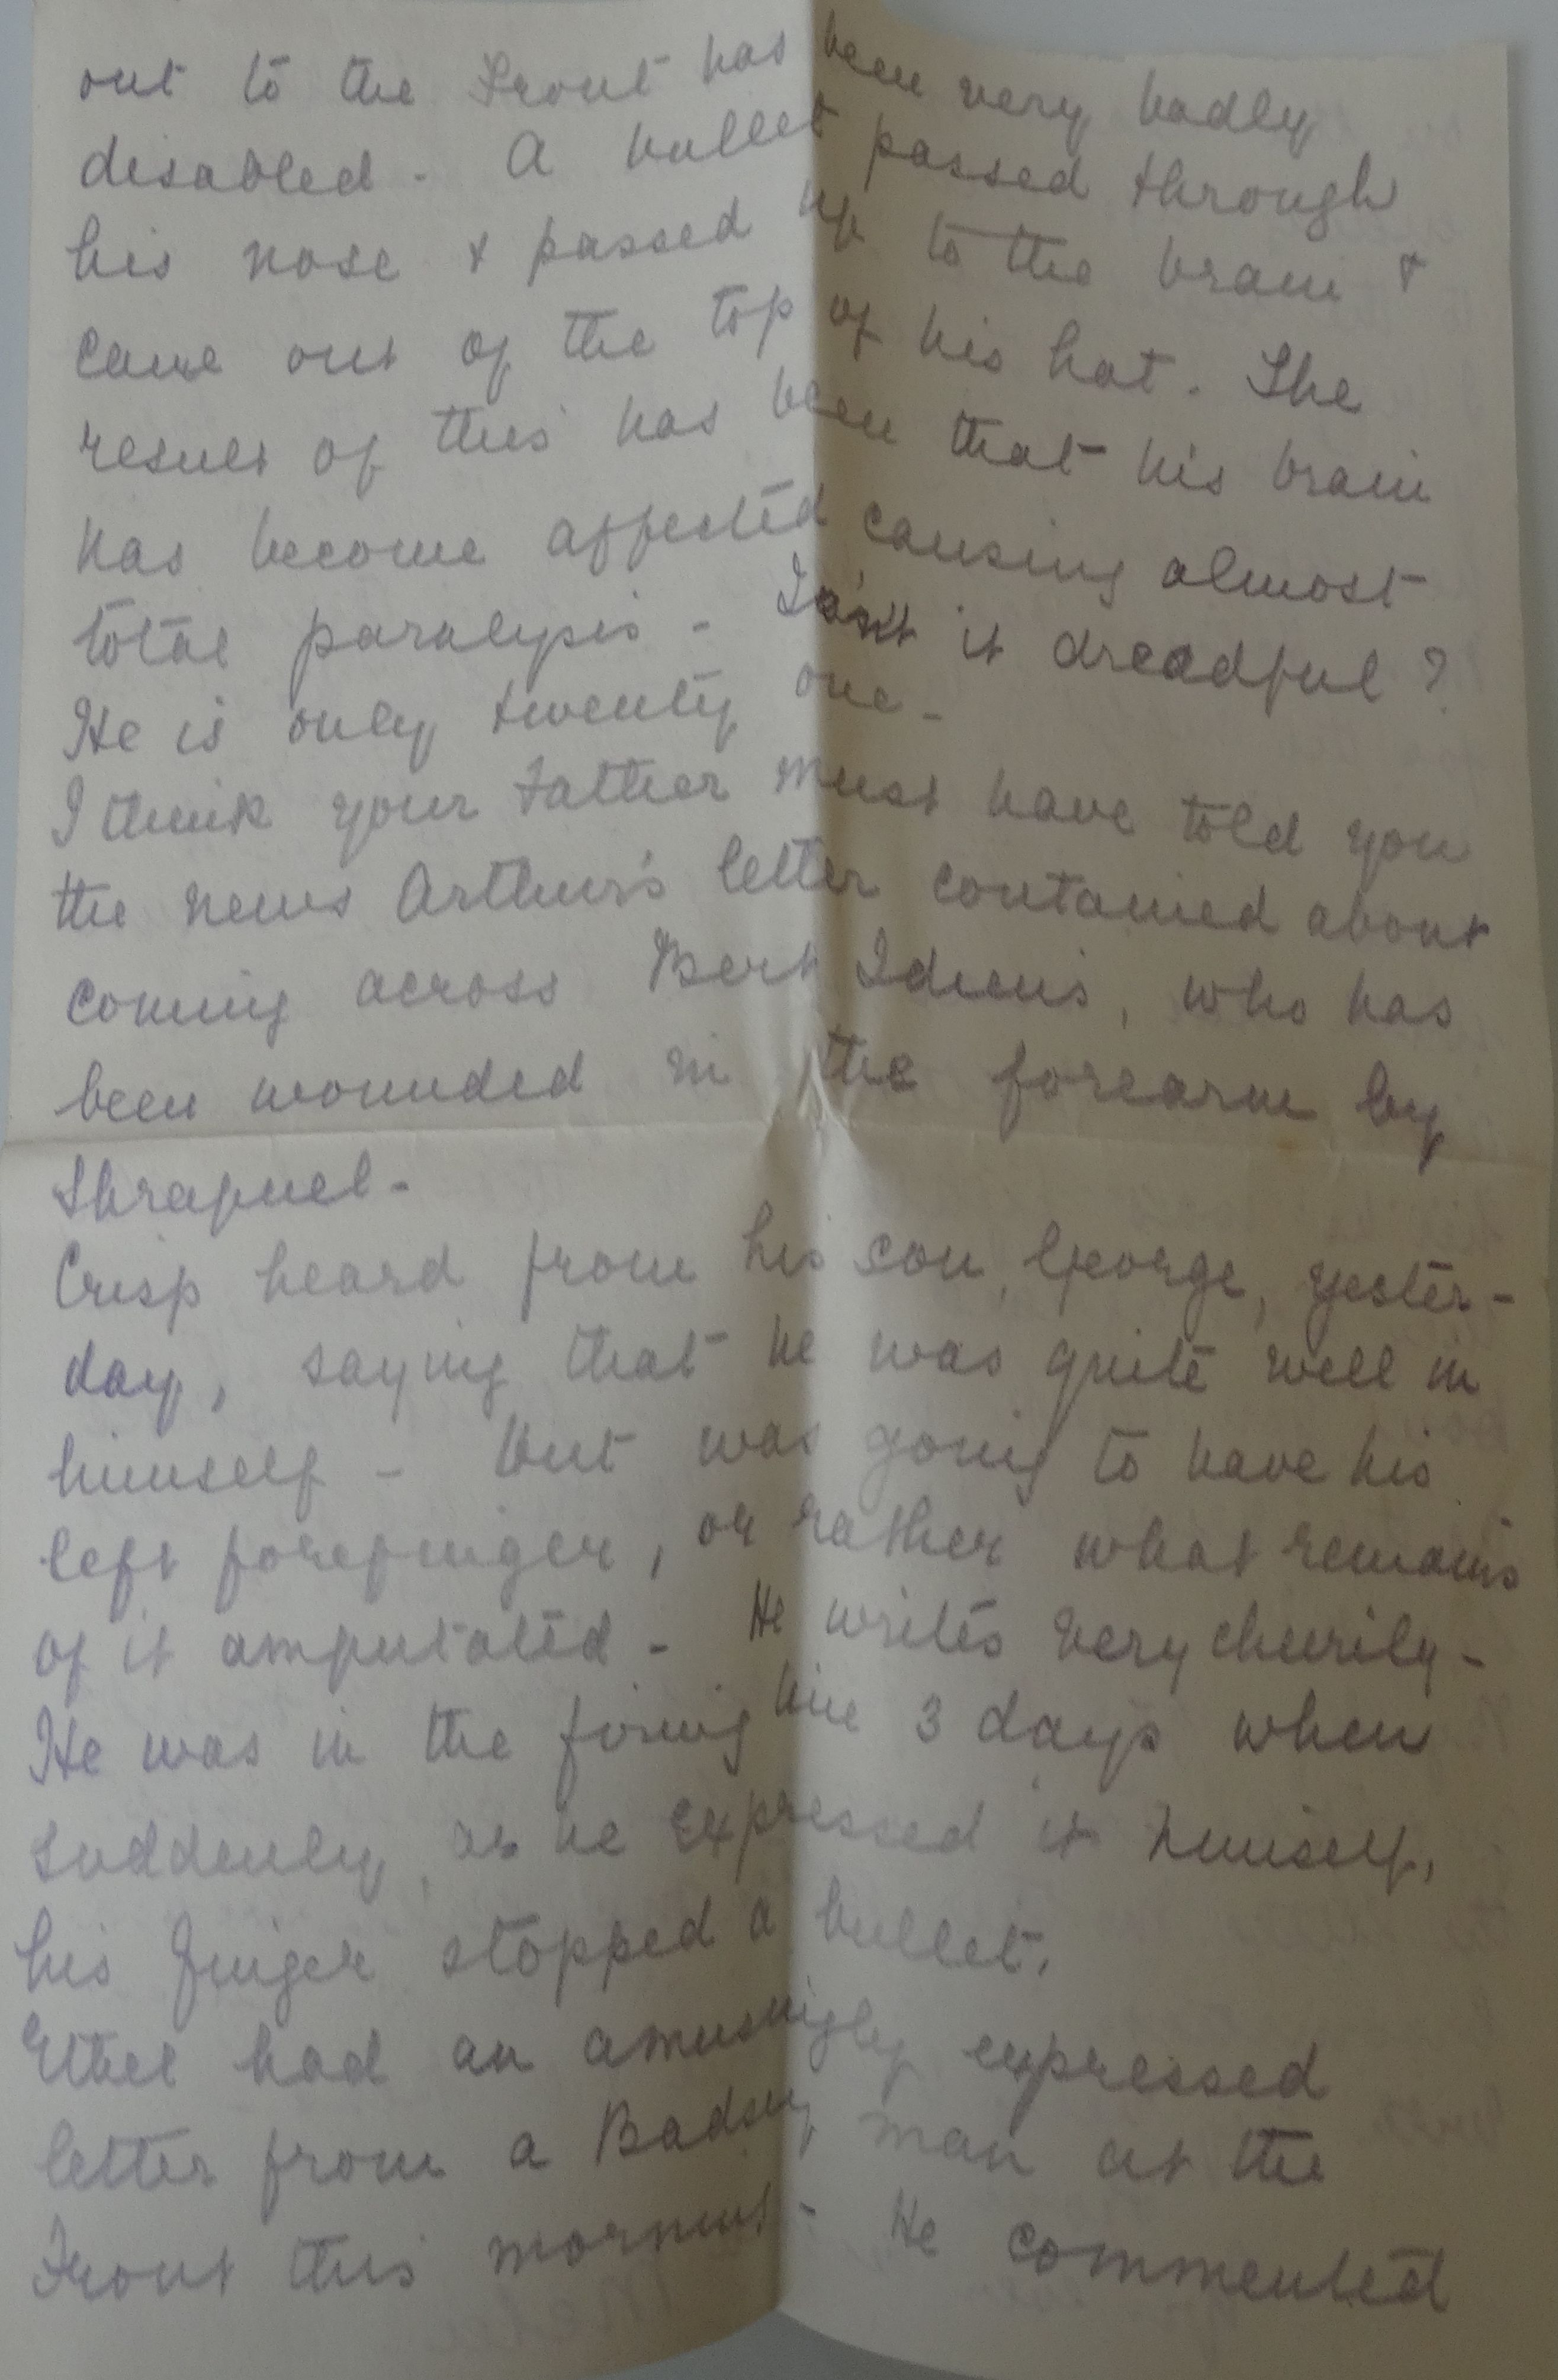 out to the Front has been very badly
disabled - A bullet passed through
his nose & passed up to the brain &
came out of the top of his hat. The
result of this has been that his brain
has become affected causing almost
total paralysis - Isn't it dreadful?
He is only twenty one -
I think your Father must have told you
the news Arthur's letter contained about
coming across Bert Idiens, who has
been wounded in the forearm by
Shrapnel -
Crisp heard from his son, George, yester-
day, saying that he was quite well in
himself - but was going to have his
left forefinger, or rather what remains
of it amputated - He writes very cheerily -
He was in the firing line 3 days when
suddenly, as he expressed it himself,
his finger stopped a bullet.
Ethel had an amusingly expressed
letter from a Badsey man at the
Front this morning - He commented